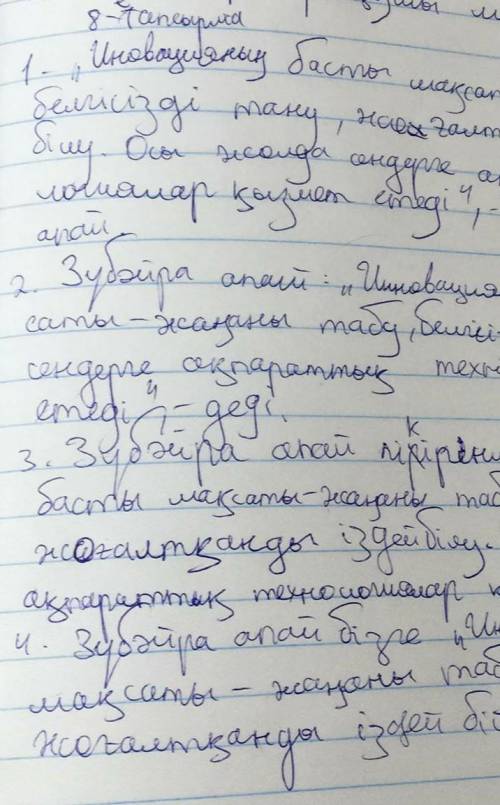 8-тапсырма
1- „Иновацияның басты мақсат
белгісізді тану, жоғалт
білу. Осы жолда сендерге ақ
логиялар қызмет етеді",-
апай.
2. Зүбәйра апай: „Инновация
саты - жаңаны табу, белгісі
сендерге ақпараттық техн
етеді",- деді.
3. Зүбәйра апай пікірін
басты мақсаты-жаңаны таб
жоғалтқанды іздей білу.
ақпараттық технологиялар қ
4. Зүбәйра апай бізге „Ин
мақсаты - жаңаны таб
жоғалтқанды іздей біл